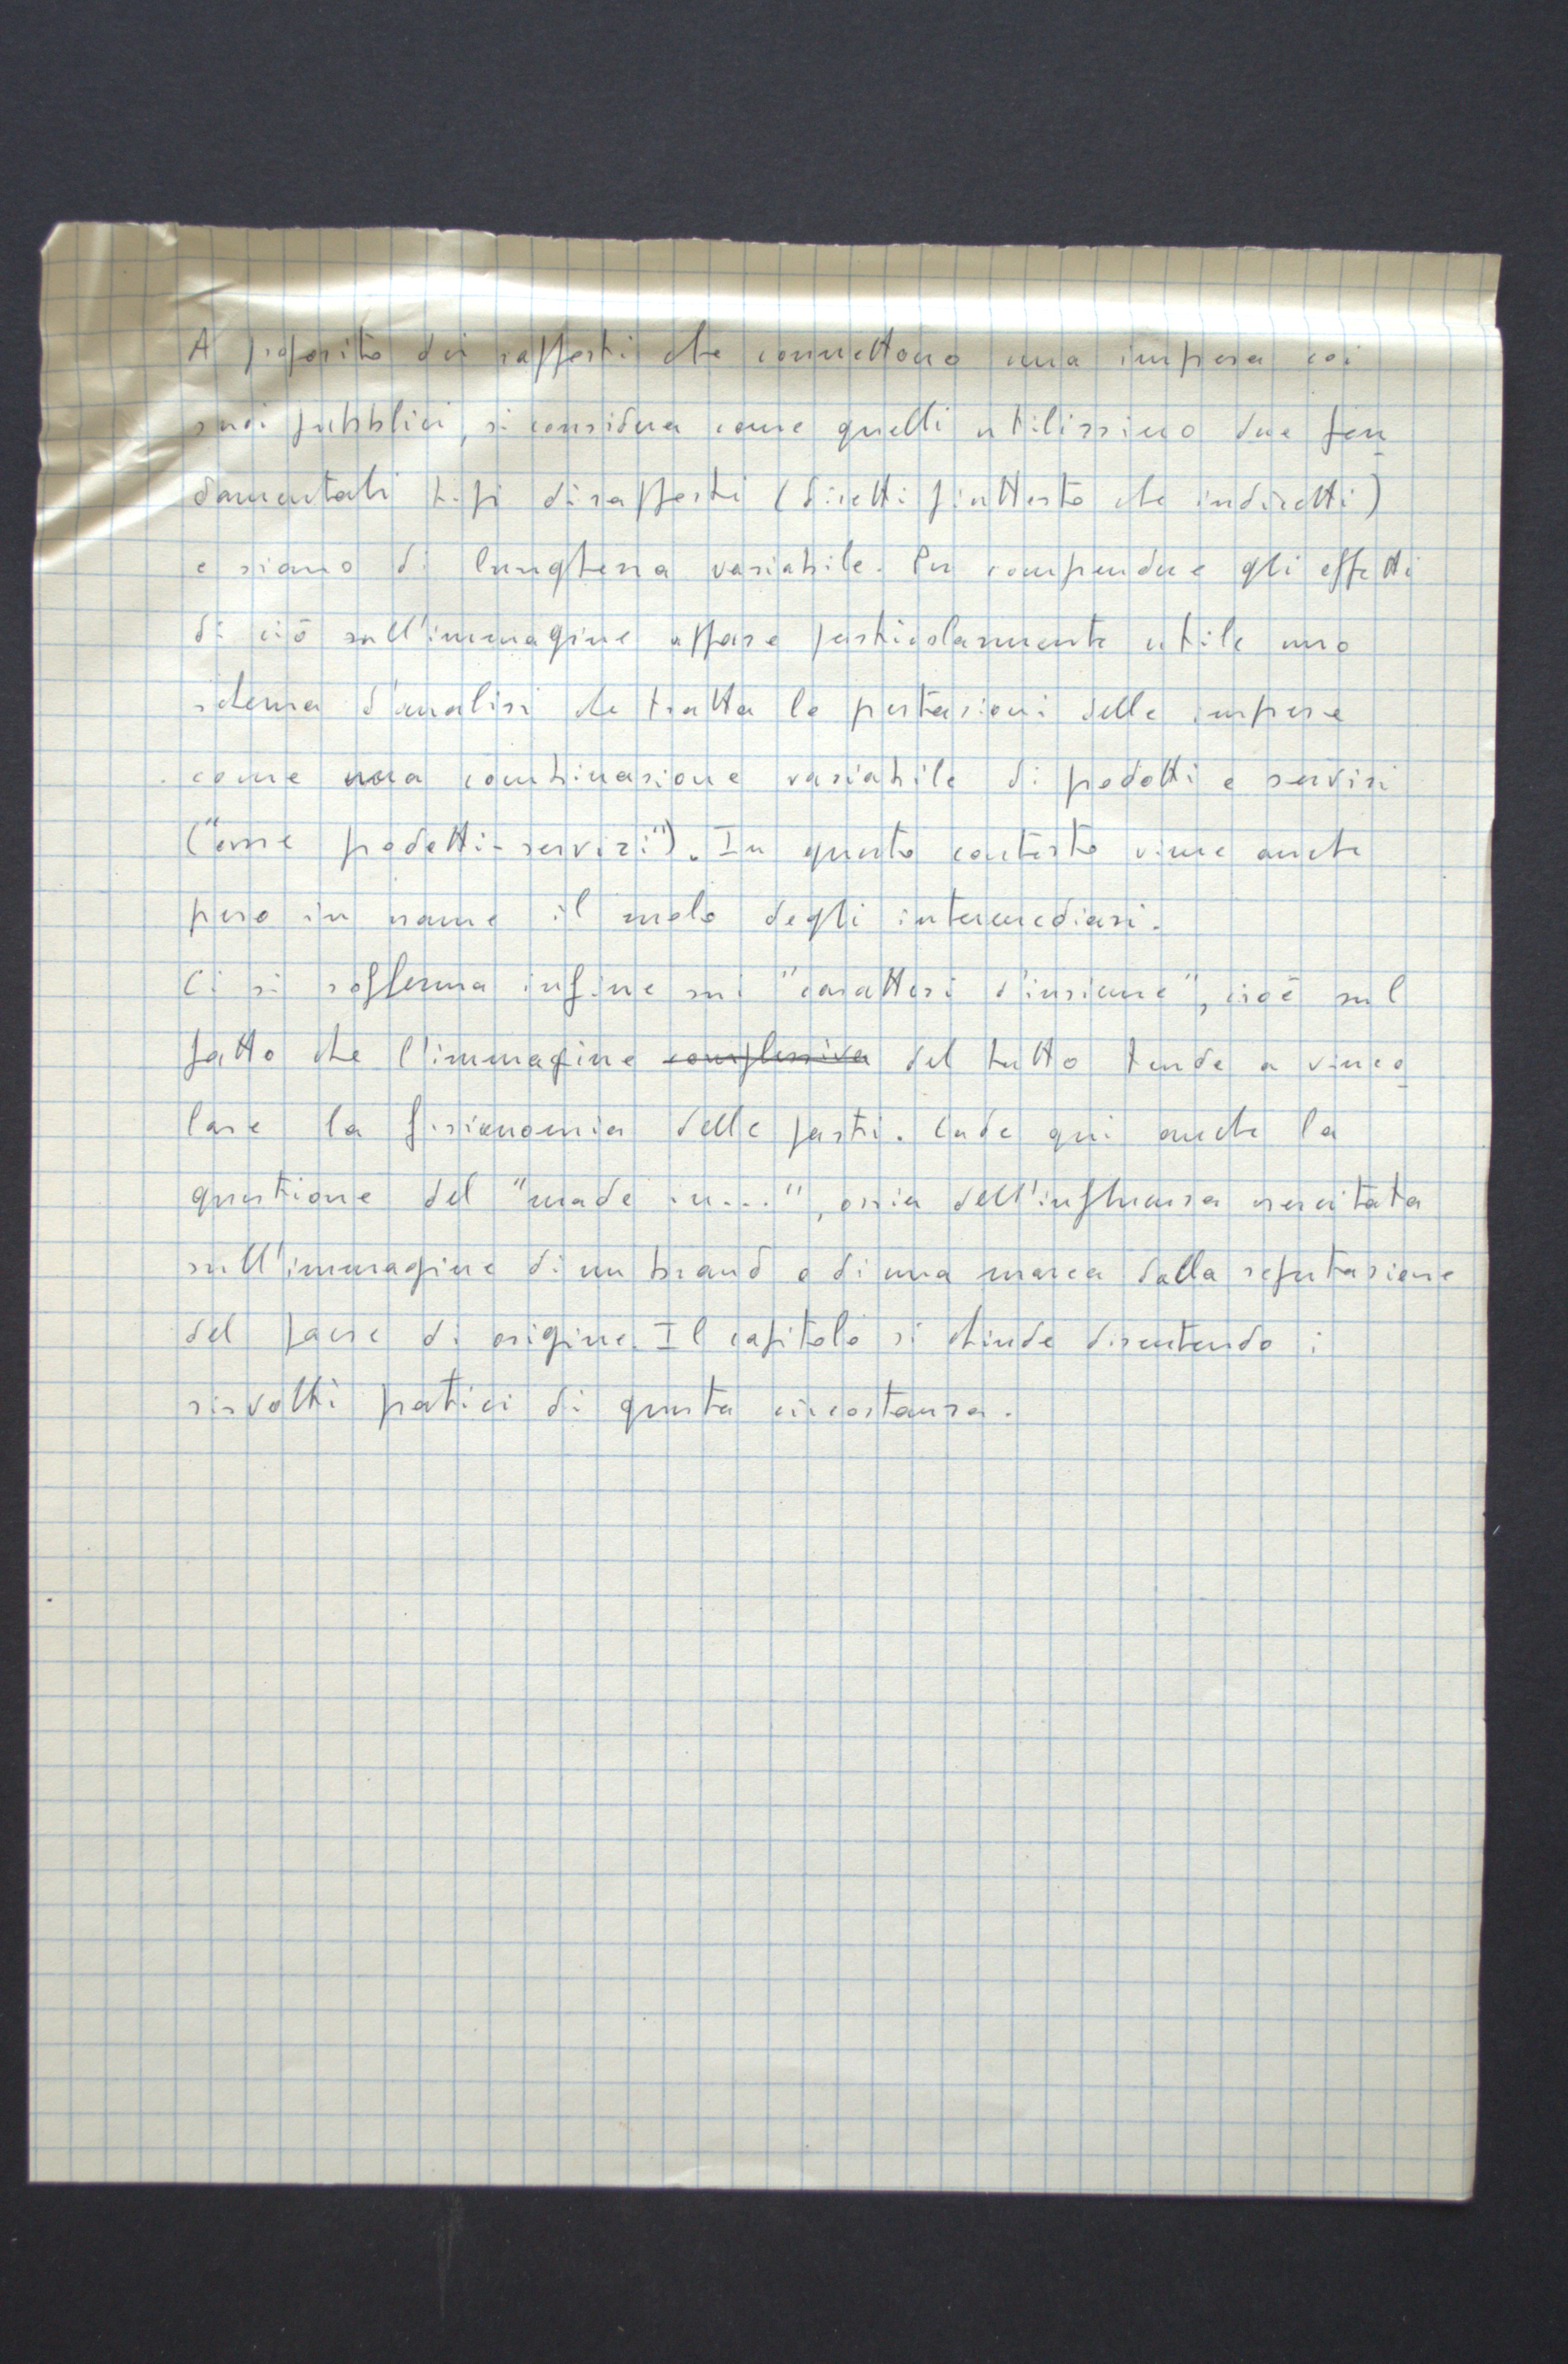 A proposito dei rapporti che connettono una impresa coi
suoi pubblici, si considera come quelli utilizzino due fon
damentali tipi di rapporti (diretti piuttosto che indiretti)
e siano di lunghezza variabile. Per comprendere gli effetti
di ciò sull'immagine appare particolarmente utile uno
schema d'analisi che tratta le prestazioni delle imprese
come una combinazione variabile di prodotti e servizi
("asse prodotti-servizi"). In questo contesto viene anche
preso in esame il ruolo degli intermediari.
Ci si sofferma infine sui "caratteri d'insieme", cioè sul
fatto che l'immagine complessiva del tutto tende a vinco
lare la fisionomia delle parti. Cade qui anche la
questione del "made in...", ossia dell'influenza esercitata
sull'immagine di un brand o di una marca dalla reputazione
del paese di origine. Il capitolo si chiude discutendo i
risvolti pratici di questa circostanza.